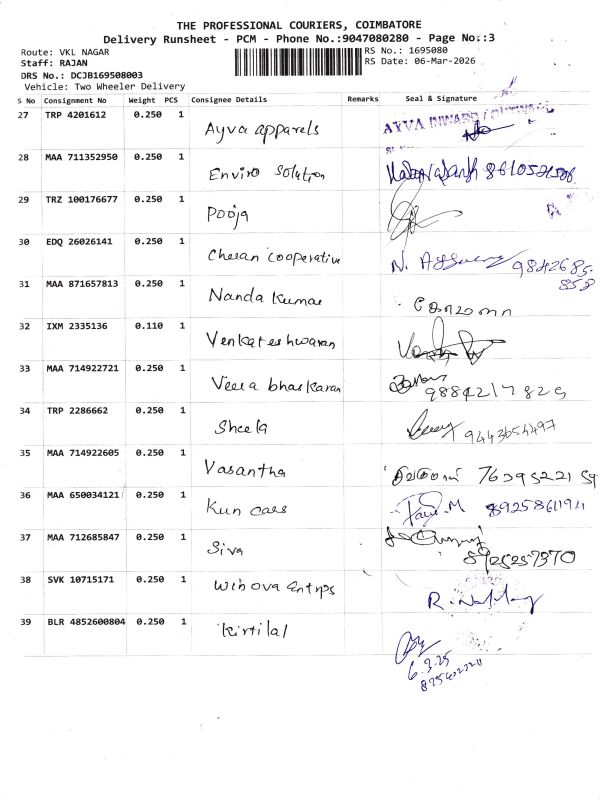 THE PROFESSIONAL COURIERS, COIMBATORE
Delivery Runsheet - PCM - Phone No.:9047080280 - Page No.:3
Route: VKL NAGAR RS No.: 1695080
Staff: RAJAN RS Date: 06-Mar-2026
DRS No.: DCJB169508003
Vehicle: Two Wheeler Delivery
S No Consignment No Weight PCS Consignee Details Remarks Seal & Signature
27 TRP 4201612 0.250 1 Ayva apparels AYVA INWARD /
28 MAA 711352950 0.250 1 Enviro Solution
29 TRZ 100176677 0.250 1 Pooja
30 EDQ 26026141 0.250 1 Cheran cooperative N. 9842685
858
31 MAA 871657813 0.250 1 Nanda kumar
32 IXM 2335136 0.110 1 Venkateshwaran
33 MAA 714922721 0.250 1 Veera bhaskaran 9884217829
34 TRP 2286662 0.250 1 Sheela 9443654497
35 MAA 714922605 0.250 1 Vasantha
36 MAA 650034121 0.250 1 Kun cars
37 MAA 712685847 0.250 1 Siva 8925257370
38 SVK 10715171 0.250 1 Winova Entrps
39 BLR 4852600804 0.250 1 Kirtilal
6.3.25